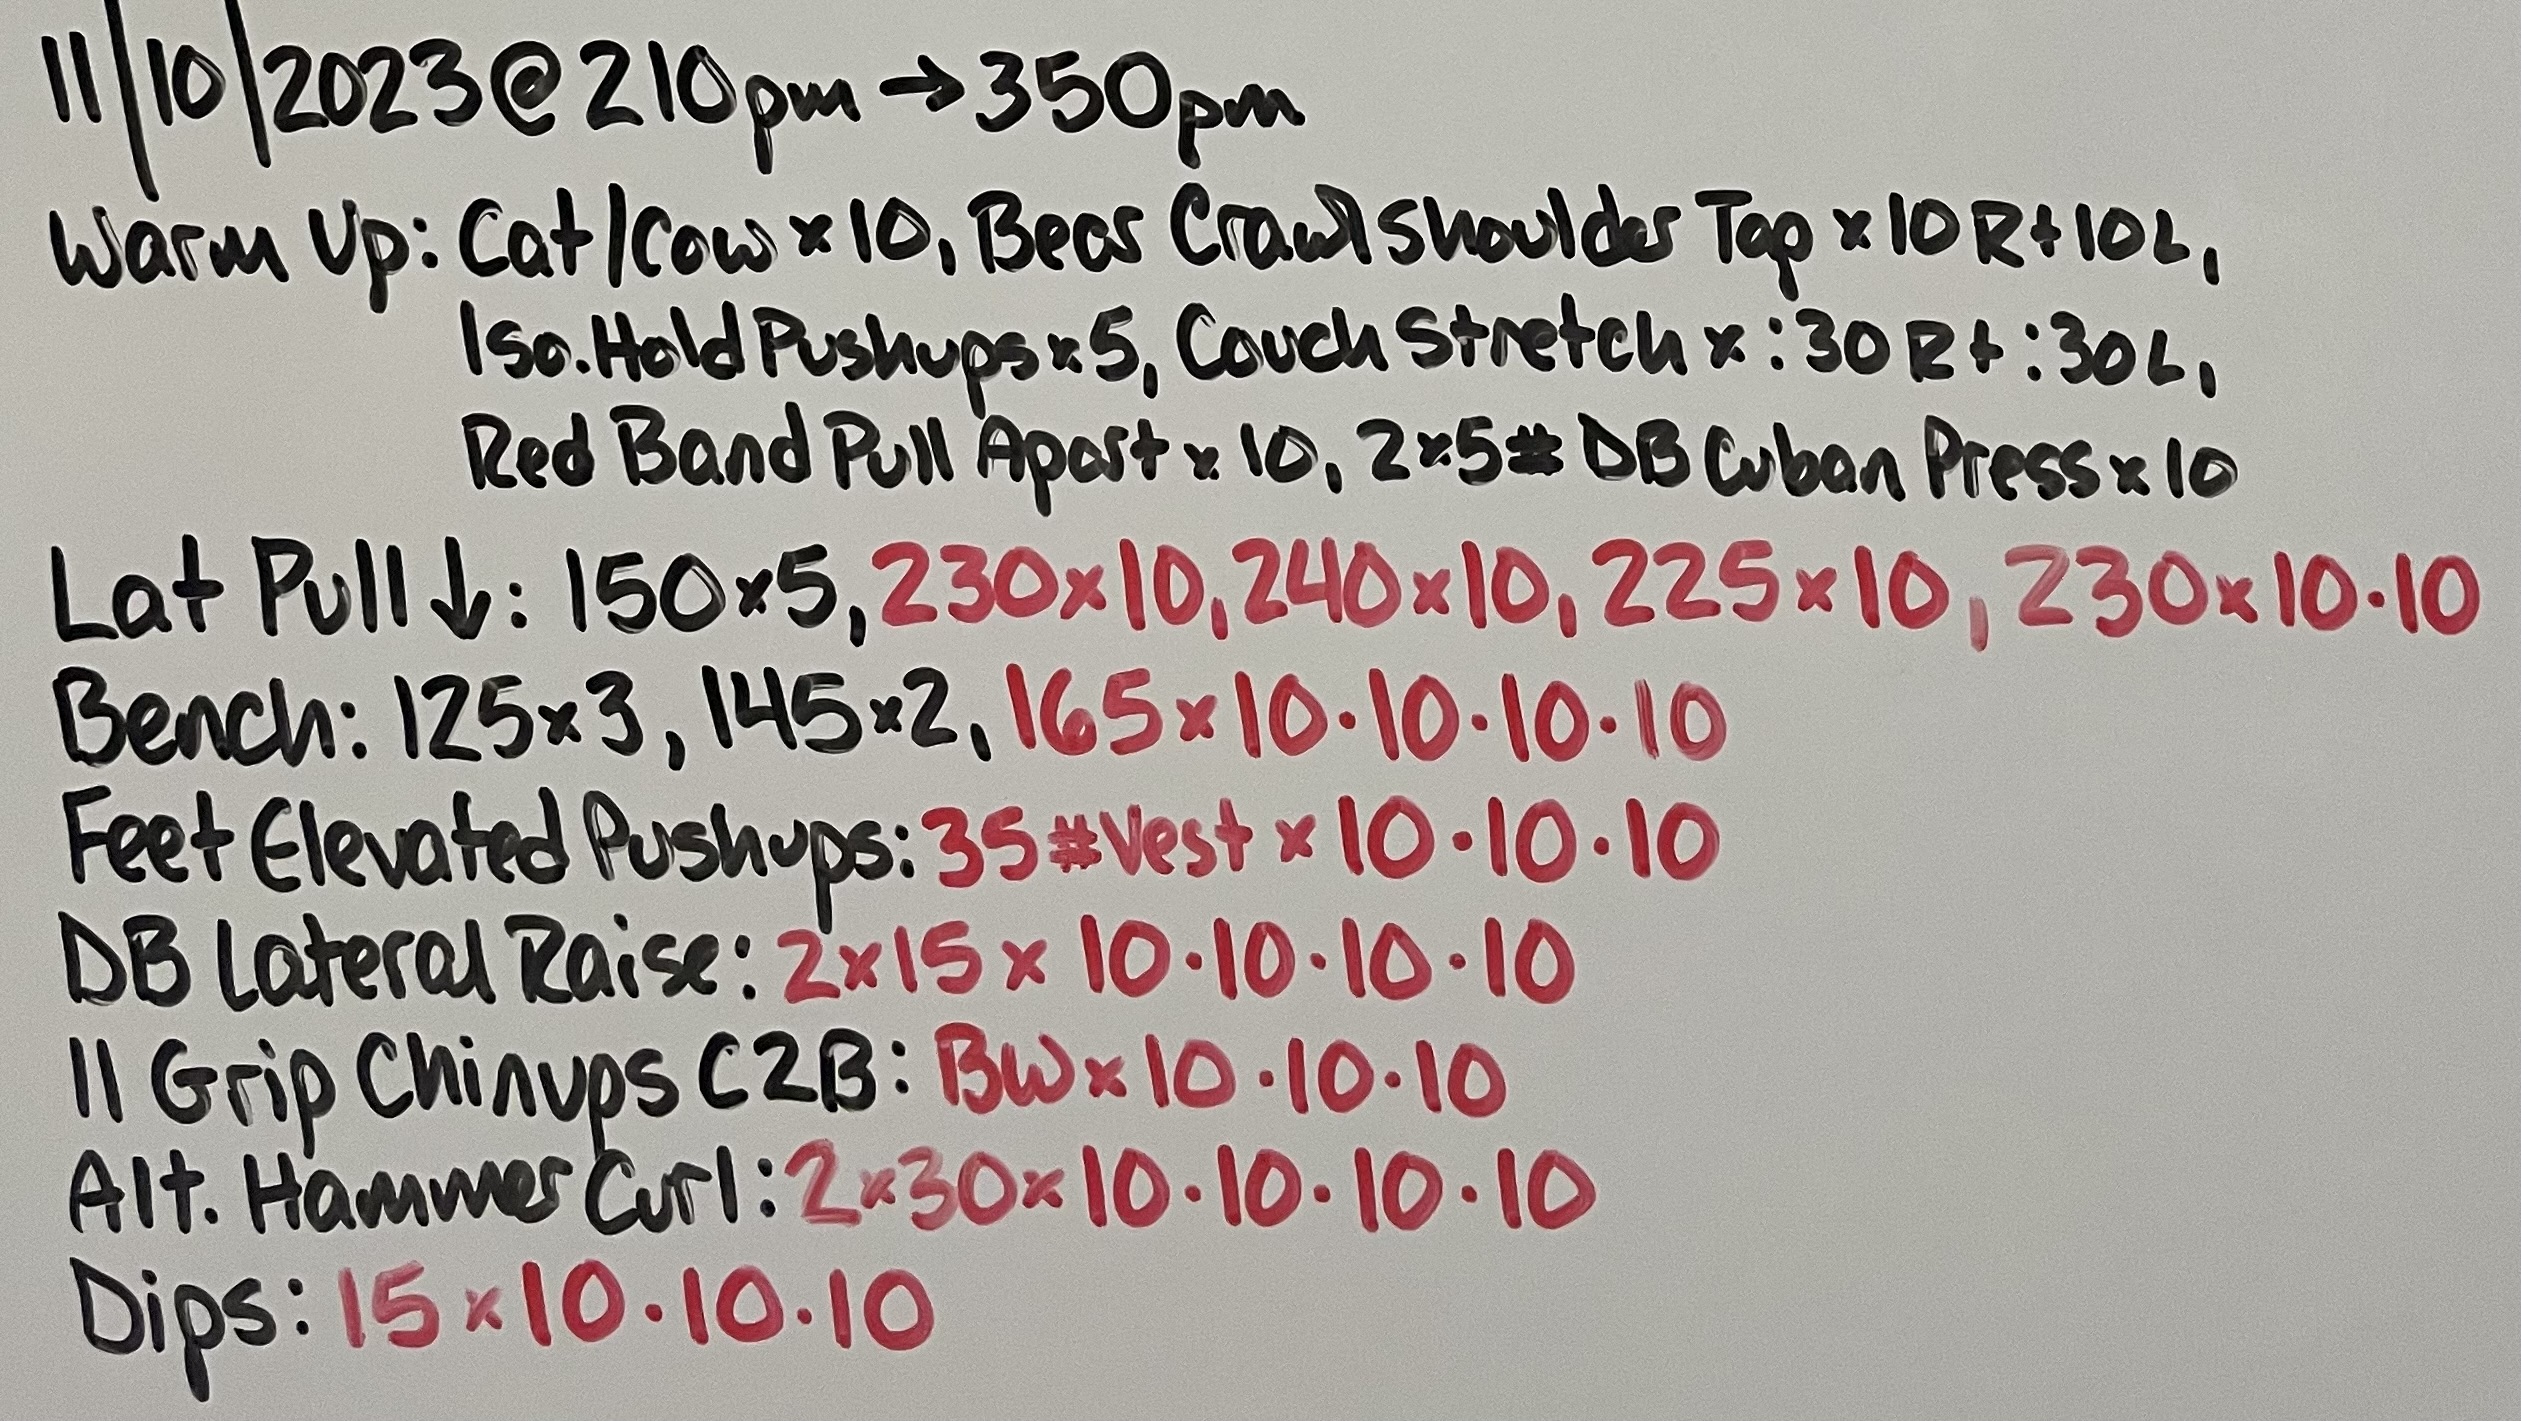 11/10/2023@210pm→350pm
Warm Up: Cat/Cow x 10, Bear Crawl Shoulder Tap x 10R+10L,
Iso. Hold Pushups x 5, Couch Stretch x :30R+:30L,
Red Band Pull Apart x 10, 2x5# DB Cuban Press x 10
Lat Pull↓: 150x5, 230x10, 240x10, 225x10, 230x10·10
Bench: 125x3, 145x2, 165x10·10·10·10
Feet Elevated Pushups: 35# Vest x 10·10·10
DB Lateral Raise: 2x15 x 10·10·10·10
|| Grip Chinups C2B: BW x 10·10·10
Alt. Hammer Curl: 2x30x10·10·10·10
Dips: 15 x 10·10·10